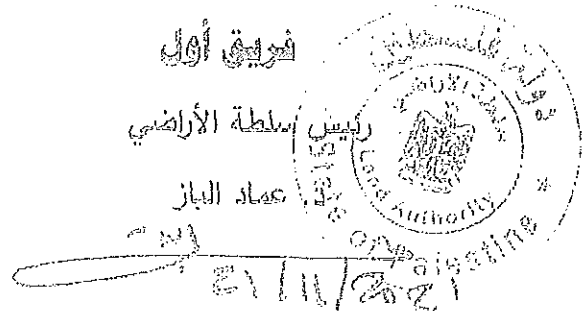 فريق أول
رئيس سلطة الأراضي
عماد الباز
دولة فلسطين
سلطة الأراضي
Land Authority
State of Palestine